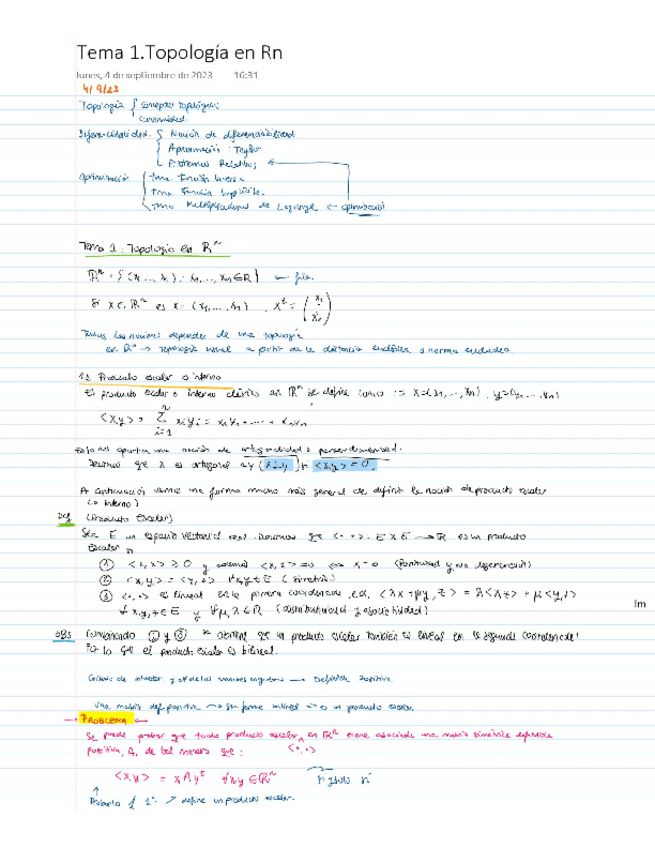 Tema 1.Topología en Rn
lunes, 4 de septiembre de 2023 16:31
4/9/23
Topología { conceptos topológicos
continuidad
Diferenciabilidad { Noción de diferenciabilidad
Aproximación: Taylor
Extremos Relativos
optimización { Tma Función Inversa
Tma Función Implícita
Tma Multiplicadores de Lagrange ← optimización
Tema 1: Topología en Rⁿ
Rⁿ = { (x₁, ..., xₙ) : x₁, ..., xₙ ∈ R } ← fila
Si x ∈ Rⁿ es x = (x₁, ..., xₙ) , xᵗ = (x₁ ⋮ xₙ)
Todas las nociones dependen de una topología
en Rⁿ → Topología usual a partir de la distancia euclídea, o norma euclídea.
1) Producto escalar o interno
El producto escalar o interno clásico en Rⁿ se define como := x=(x₁,...,xₙ) , y=(y₁,...,yₙ)
<x,y> = Σ i=1 n xᵢyᵢ = x₁y₁ + ... + xₙyₙ
Esto nos aporta una noción de ortogonalidad o perpendicularidad.
Decimos que x es ortogonal a y (x⊥y) si <x,y> = 0.
A continuación vamos una forma mucho más general de definir la noción de producto escalar
(o interno)
Def (Producto Escalar)
Sea E un espacio vectorial real. Decimos que <·,·>: E x E → R es un producto
escalar si
① <x,x> ≥ 0 y además <x,x> = 0 ⟺ x = 0 (Positividad y no degeneración)
② <x,y> = <y,x> ∀x,y ∈ E (simetría)
③ <·,·> es lineal en la primera coordenada, i.e., <λx + μy, z> = λ<x,z> + μ<y,z>
∀ x,y,z ∈ E y ∀μ,λ ∈ R (distributividad y asociatividad)
Im
OBS Combinando ② y ③ se obtiene que un producto escalar también es lineal en la segunda coordenada!
Por lo que el producto escalar es bilineal.
Criterio de Sylvester y el de los menores angulares → Definida Positiva
Una matriz def. positiva → su forma bilineal → es un producto escalar.
→ PROBLEMA ←
Se puede probar que todo producto escalar <·,·> en Rⁿ tiene asociada una matriz simétrica definida
positiva, A, de tal manera que:
<x,y> = xAyᵗ ∀x,y ∈ Rⁿ
define un producto escalar.